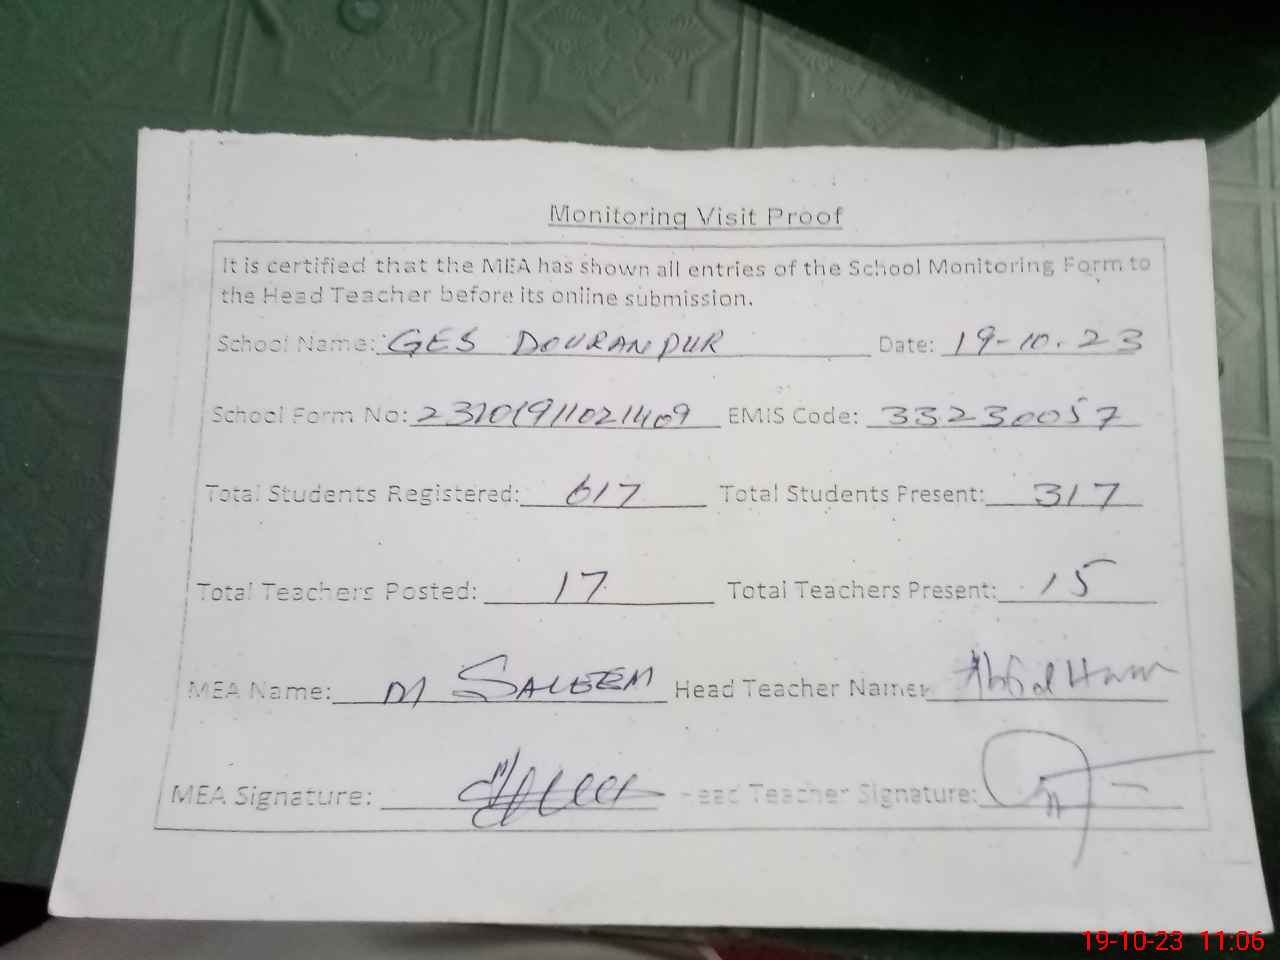 Monitoring Visit Proof
It is certified that the MEA has shown all entries of the School Monitoring Form to
the Head Teacher before its online submission.
School Name: GES DOURANPUR Date: 19-10-23
School Form No: EMIS Code: 33230057
Total Students Registered: 617 Total Students Present: 317
Total Teachers Posted: 17 Total Teachers Present: 15
MEA Name: M SALEEM Head Teacher Name:
MEA Signature: Head Teacher Signature:
19-10-23 11:06